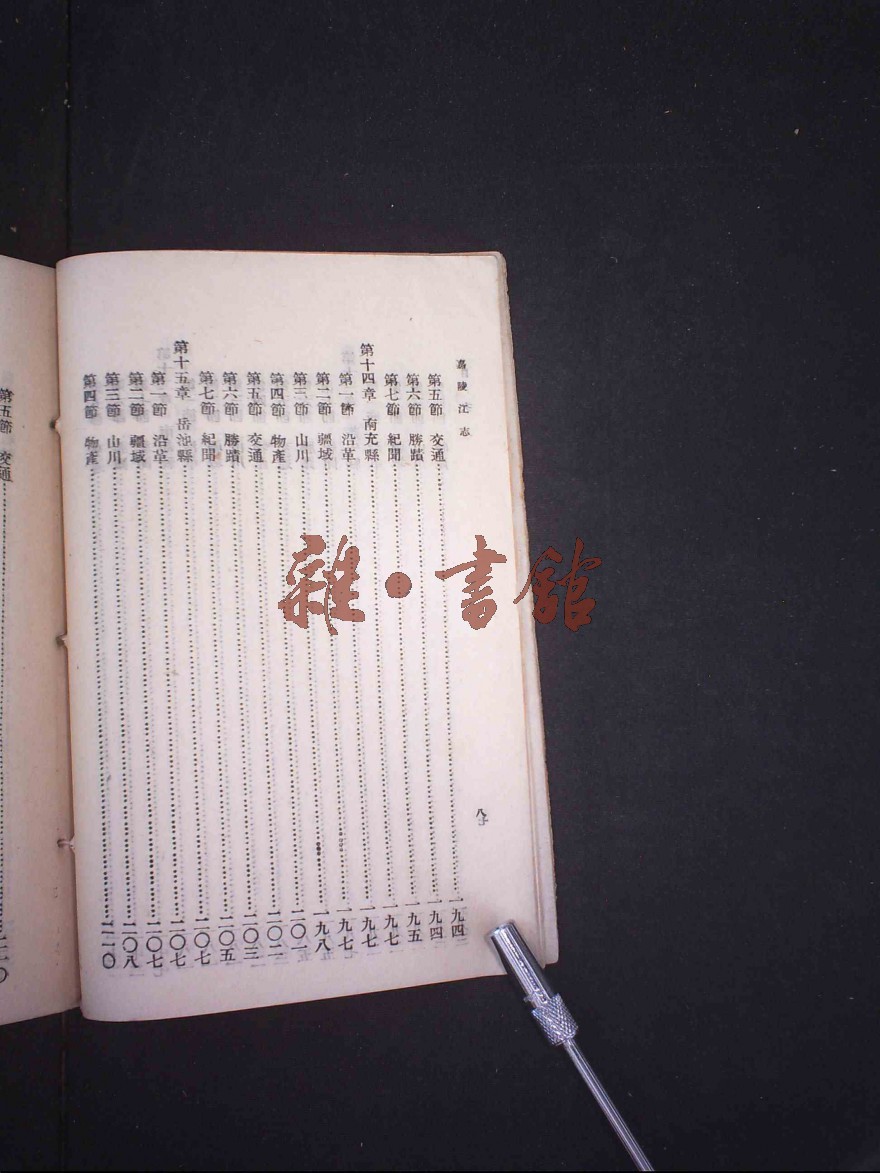 嘉陵江志
八
第五節 交通……一九四
第六節 勝蹟……一九四
第七節 紀聞……一九五
第十四章 南充縣……一九七
第一節 沿革……一九七
第二節 疆域……一九七
第三節 山川……一九八
第四節 物產……二〇一
第五節 交通……二〇二
第六節 勝蹟……二〇三
第七節 紀聞……二〇五
第十五章 岳池縣……二〇七
第一節 沿革……二〇七
第二節 疆域……二〇七
第三節 山川……二〇八
第四節 物產……二一〇
第五節 交通
雜·書館